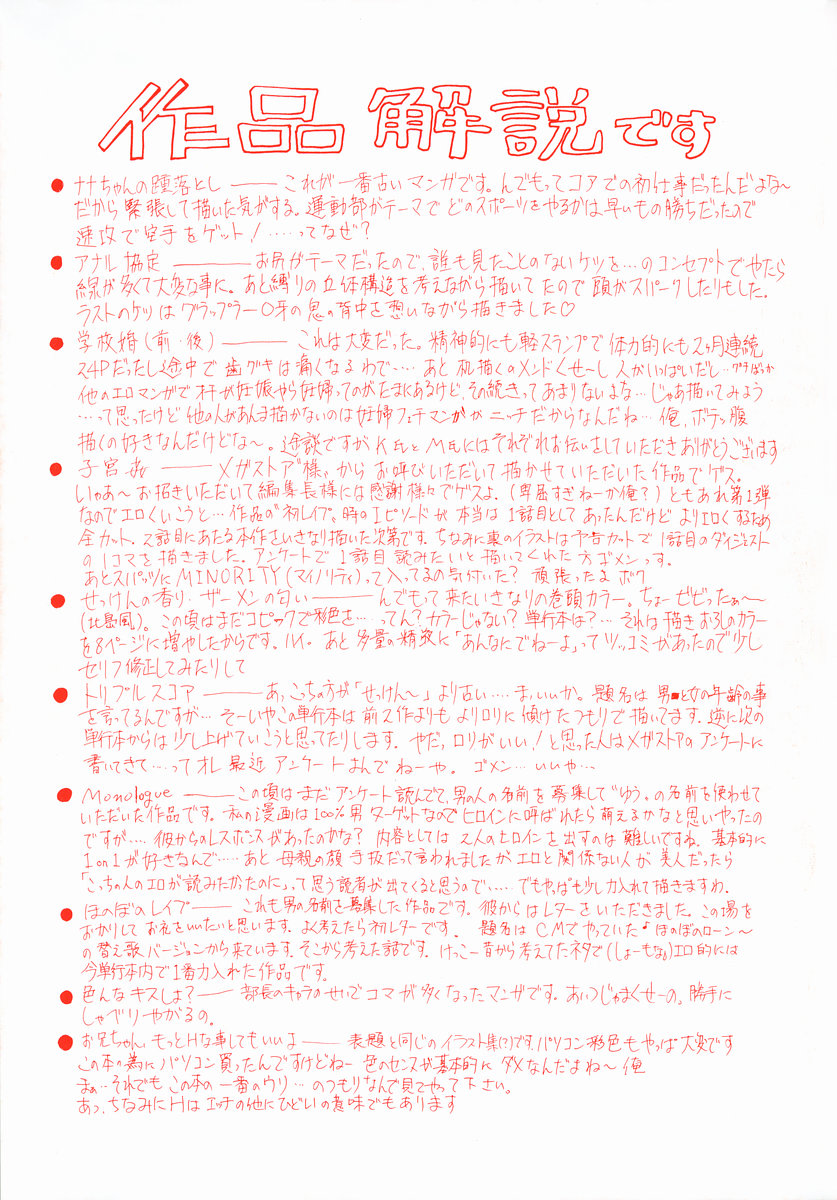 作品解説です
●ナナちゃんの堕落とし――これが一番古いマンガです。んでもってコアでの初仕事だったんだよな〜
だから緊張して描いた気がする。運動部がテーマでどのスポーツをやるかは早いもの勝ちだったので
速攻で空手をゲット！……ってなぜ？
●アナル協定――お尻がテーマだったので、誰も見たことのないケツを…のコンセプトでやたら
線が多くて大変な事に。あと縛りの立体構造を考えながら描いてたので頭がスパークしたりもした。
ラストのケツはグラップラー〇牙の鬼の背中を想いながら描きました♡
●学校婚(前・後)――これは大変だった。精神的にも軽スランプで体力的にも2ヶ月連続
24Pだったし途中で歯グキは痛くなるわで…あと机描くのメンドくせーし人がいっぱいだし…グチばっか
他のエロマンガでオチが妊娠やら妊婦ってのがたまにあるけど、その続きってあまりないよな…じゃあ描いてみよう
…って思ったけど他の人があんま描かないのは妊婦フェチマンガがニッチだからなんだね…俺、ボテッ腹
描くの好きなんだけどな〜。途談ですがK氏とM氏にはそれぞれお伝いをしていただきありがとうございます
●子宮――メガストア様からお呼びいただいて描かせていただいた作品でゲス。
いやあ〜お招きいただいて編集長様には感謝様々でゲスよ。(卑屈すぎねーか俺？)ともあれ第1弾
なのでエロくいこうと…作品の"初レイプ"時のエピソードが本当は1話目としてあったんだけどよりエロくするため
全カット。2話目にあたる本作をいきなり描いた次第です。ちなみに裏のイラストは予告カットで1話目のダイジェスト
の1コマを描きました。アンケートで1話目読みたいと描いてくれた方ゴメンっす。
あとスパッツにMINORITY(マイノリティ)って入ってるの気付いた？頑張ったよボク
●せっけんの香り・ザーメンの匂い――んでもって来たいきなりの巻頭カラー。ちょービビったぁ〜
(北島風)。この頃はまだコピックで彩色を…ってん？カラーじゃない？単行本は？…それは描きおろしのカラー
を8ページに増やしたからです。ハイ。あと多量の精液に「あんなにでねーよ」ってツッコミがあったので少し
セリフ修正してみたりして
●トリプルスコア――あっ、こっちの方が「せっけん〜」より古い…ま、いいか。題名は男と女の年齢の事
を言ってるんですが…そーいやこの単行本は前2作よりもよりロリに傾けたつもりで描いてます。逆に次の
単行本からは少し上げていこうと思ってたりします。やだっ、ロリがいい！と思った人はメガストアのアンケートに
書いてきて…ってオレ最近アンケートよんでねーや。ゴメン…いいや…
●Monologue――この頃はまだアンケート読んでて、男の人の名前を募集して"ゆう"の名前を使わせて
いただいた作品です。私の漫画は100%男ターゲットなのでヒロインに呼ばれたら萌えるかなと思いやったの
ですが…彼からのレスポンスがあったのかな？内容としては2人のヒロインを出すのは難しいですね。基本的に
1on1が好きなんで……あと母親の顔手抜だって言われましたがエロと関係ない人が美人だったら
「こっちの人のエロが読みたかったのに」って思う読者が出てくると思うので……でもやっぱもう少し力入れて描きますわ。
●ほのぼのレイプ――これも男の名前を募集した作品です。彼からはレターをいただきました。この場を
おかりしてお礼をいいたいと思います。よく考えたら初レターです。題名はCMでやっていた♪ほのぼのローン〜
の替え歌バージョンから来ています。そこから考えた話です。けっこー昔から考えてたネタで(しょーもな)エロ的には
今単行本内で1番力入れた作品です。
●色んなキスしよ？――部長のキャラのせいでコマが多くなったマンガです。あいつじゃまくせーの。勝手に
しゃべりやがるの。
●お兄ちゃん、もっとHな事してもいいよ――表題と同じのイラスト集(?)です。パソコン彩色もやっぱ大変です
この本の為にパソコン買ったんですけどねー色のセンスが基本的にダメなんだよね〜俺
まぁ…それでもこの本の一番のウリ…のつもりなんで見てやって下さい。
あっ、ちなみにHはエッチの他にひどいの意味でもあります